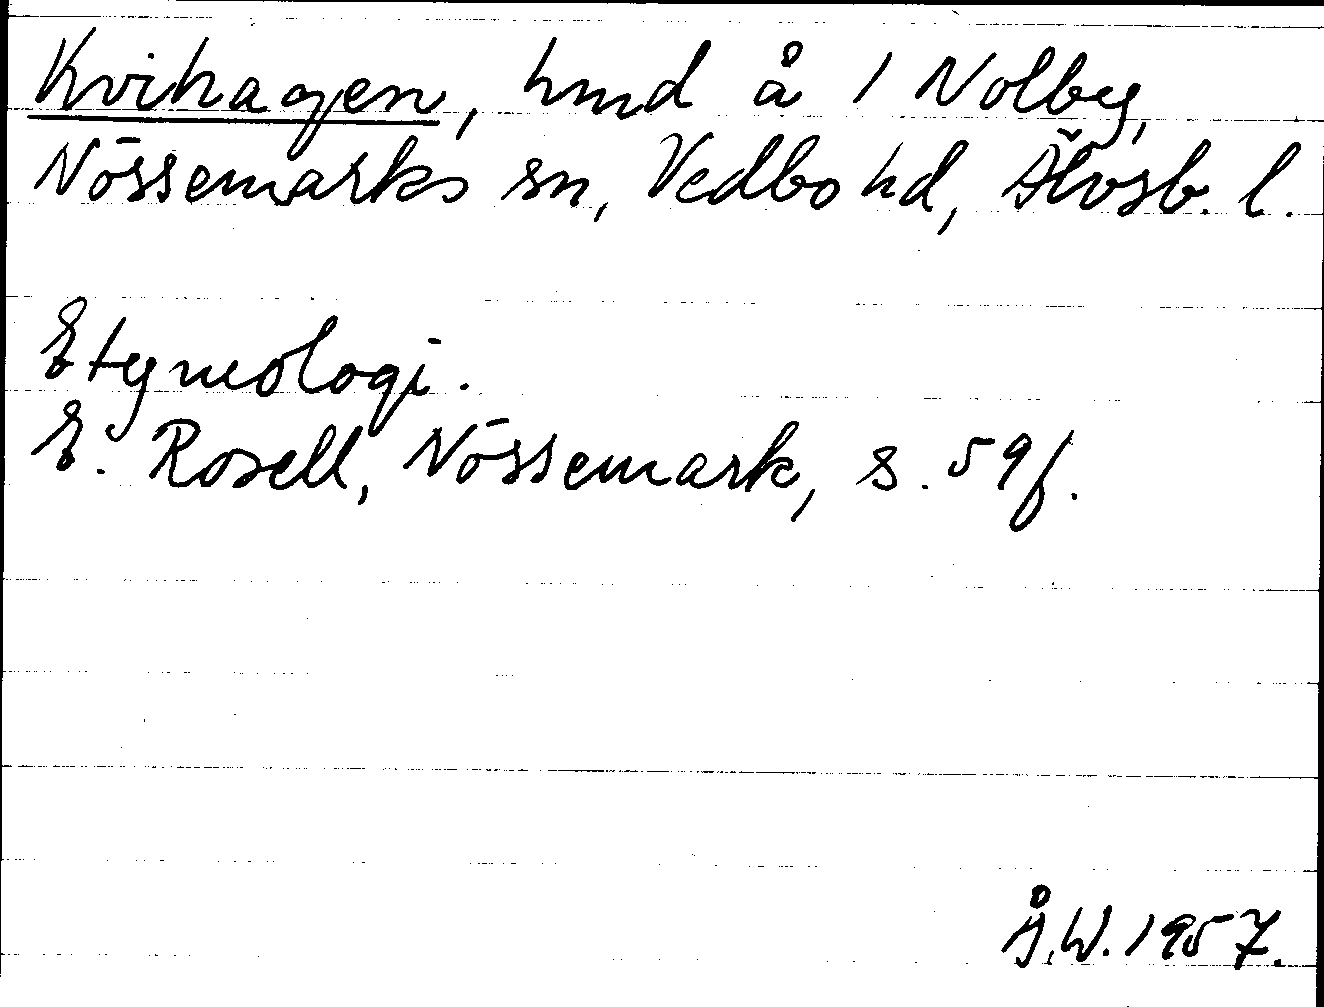 Kvihagen, hmd å 1 Nolby,
Nössemarks sn, Vedbo hd, Älvsb. l.
Etymologi.
E. Rosell, Nössemark, s. 59f.
Å.W. 1957.